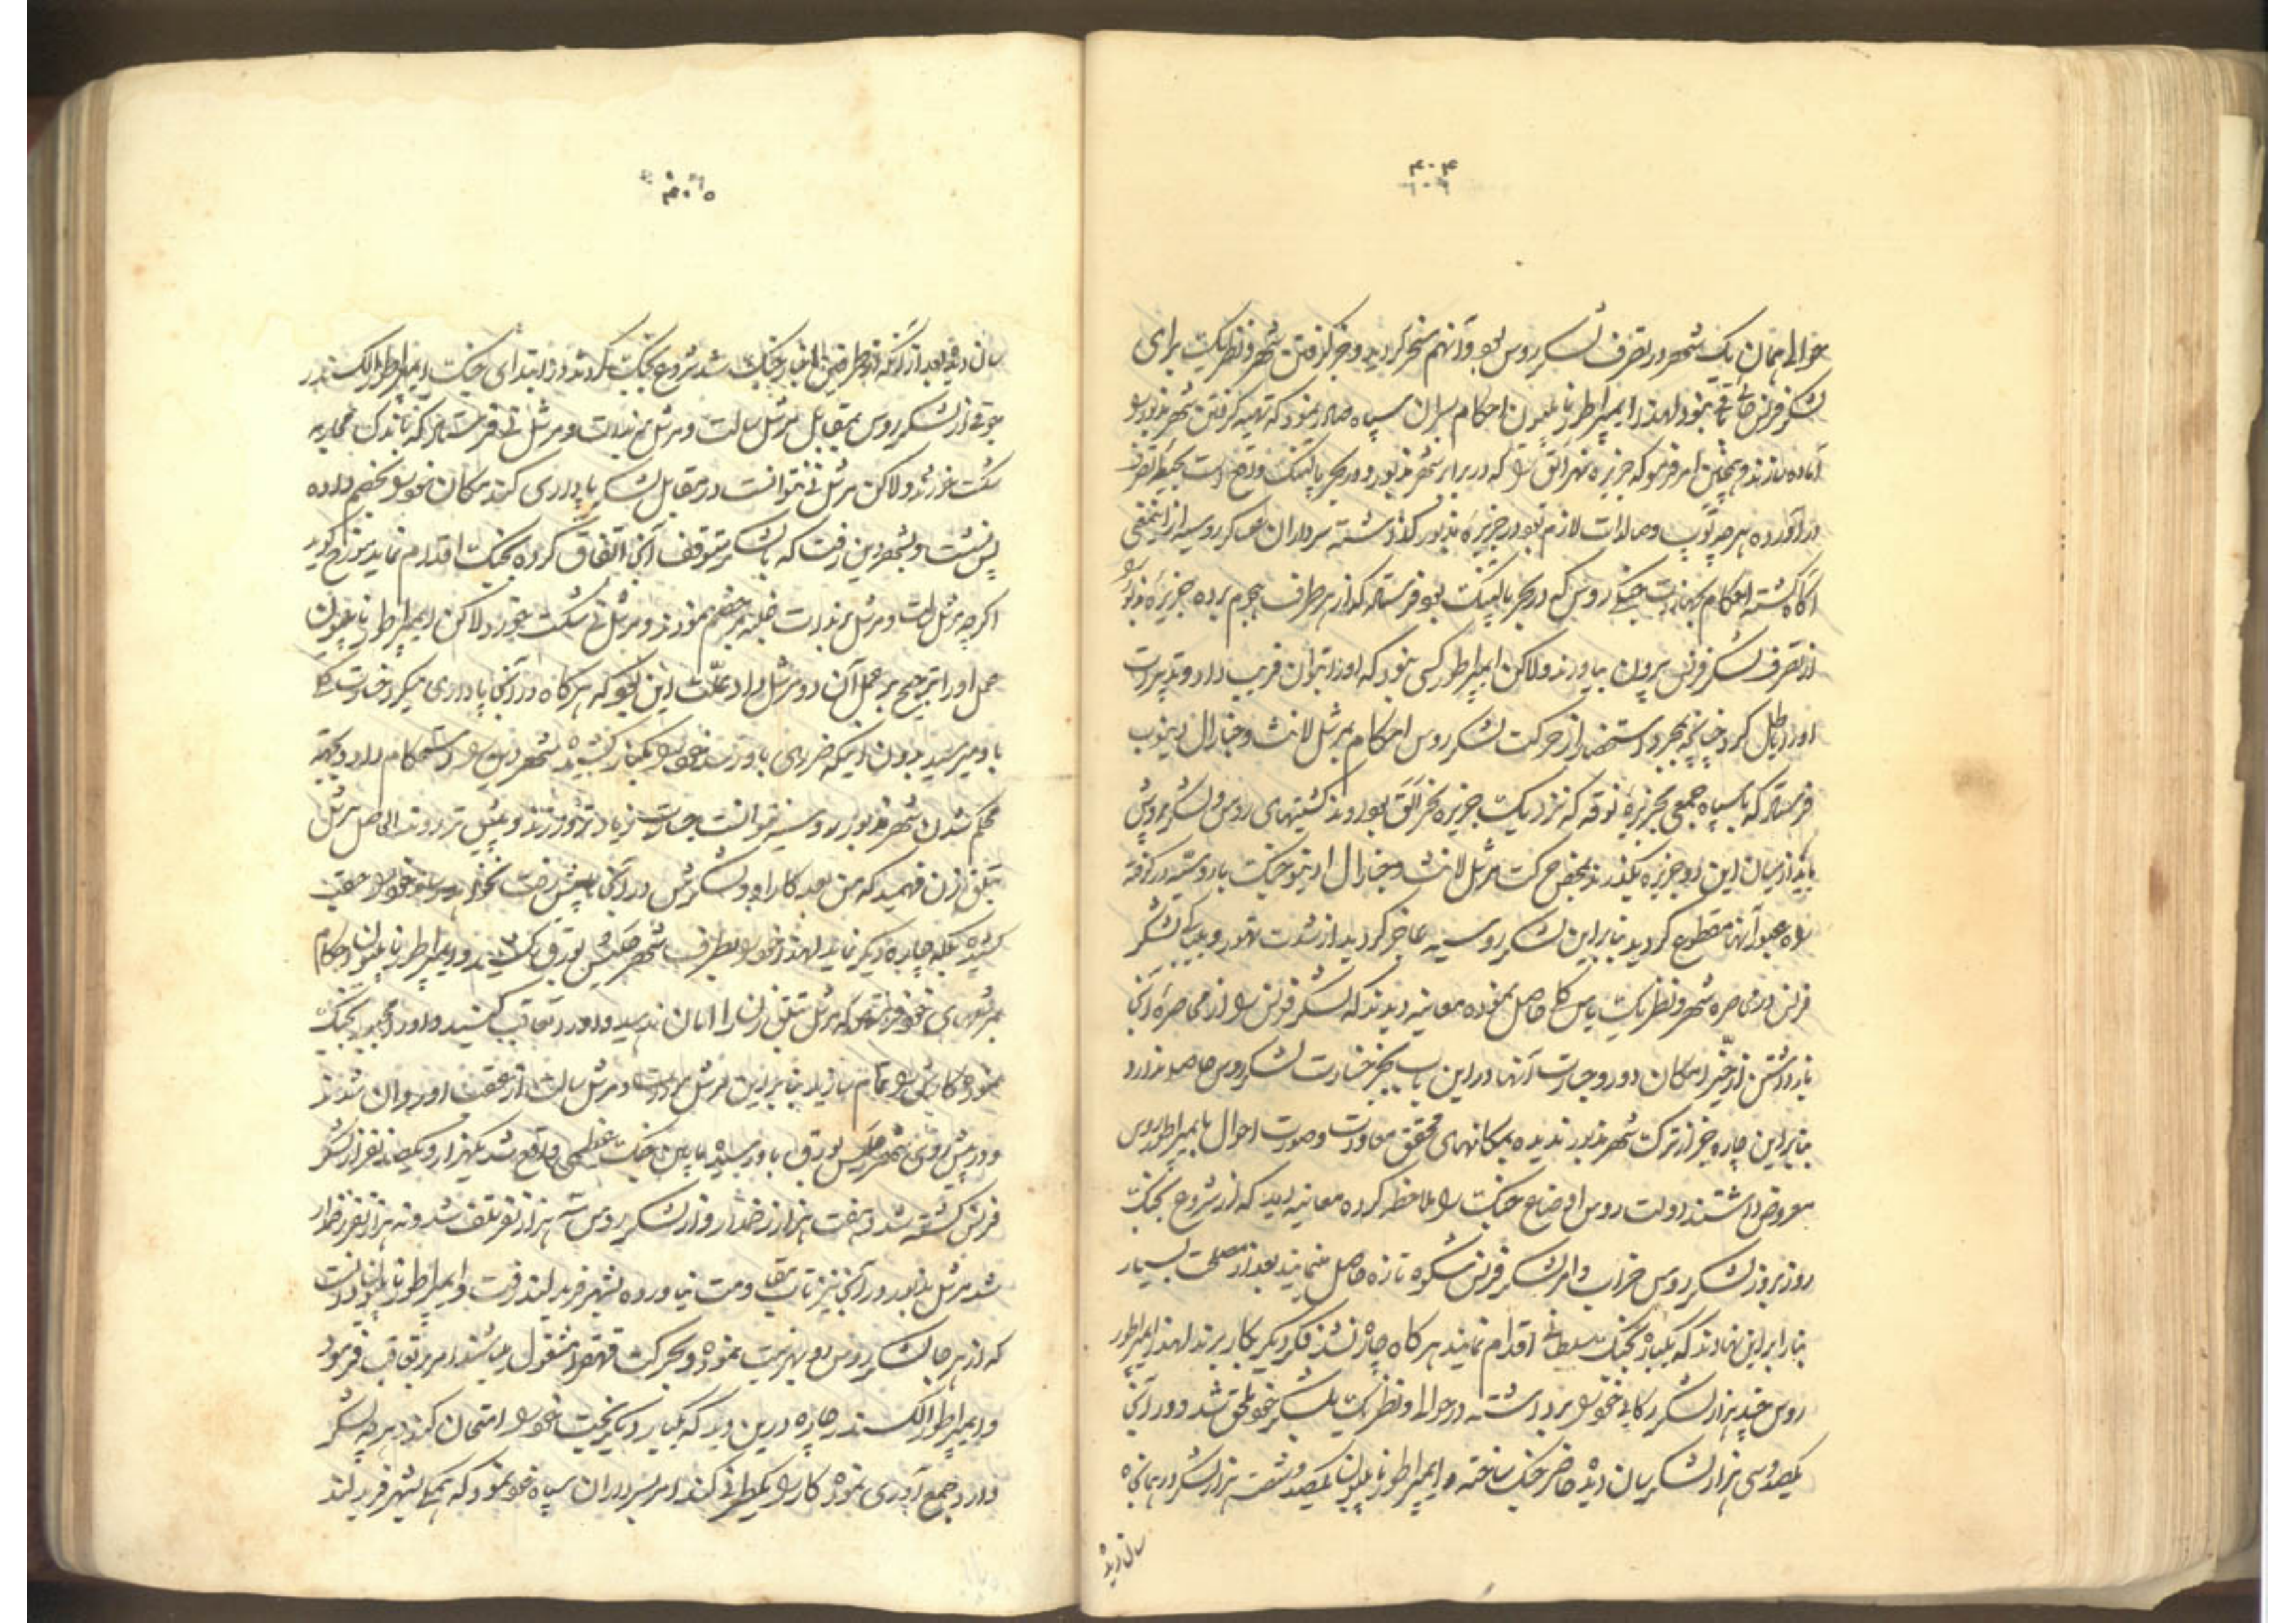 ۴۰۴
حوالی همان یک شهر در تصرف لشکر روس بود و آنهم مسخر گردید و جز گرفتن شهر ونظریک برای
لشکر فرنس جائی باقی نبود لهذا ایمپراطور ناپلیون احکام بسران سپاه صادر نمود که تهیه گرفتن شهر مذبور را
آماده سازند و همچنین امر فرمود که جزیره نهر الق را که در برابر شهر مذبور و در بحر بالتیک واقع است بحیطه تصرف
در آورده هر چه توپ و مهمات لازم بود در جزیره مذبور گذاشته سرداران عساکر روسیه از این معنی
آگاه گشته احکام بجهازات جنگی روس که در بحر بالتیک بود فرستادند که از هر طرف هجوم برده جزیره مذبور را
از تصرف لشکر فرنس بیرون بیاورند ولاکن ایمپراطور کسی نبود که او را بتوان فریب داد و تدبیرات
او را باطل کرد چنانچه بمجرد استحضار از حرکت لشکر روس احکام بمرشل لانث و جنارال
فرستاد که با سپاه جمعی بجزیره نوقه که نزدیک جزیره نحر الق بود روند کشتیهای روس و لشکر پروس
باید از میان این دو جزیره بگذرند بمحض حرکت مرشل لانث و جنارال جنگ با روسیه در گرفته
راه عبور آنها مقطوع گردید بنابراین لشکر روسیه عاجز گردید از شدت تهور و بیباکی لشکر
فرنس در محاصره شهر ونظریک یاس کلی حاصل نموده معاینه دیدند که لشکر فرنس را از محاصره آنجا
باز داشتن از حیز امکان دور و جسارت آنها در این باب بجز خسارت لشکر روس حاصلی ندارد
بنابراین چاره جز از ترک شهر مذبور ندیده بمکانهای محقق معاودت و صورت احوال بایمپراطور روس
معروض داشتند دولت روس اوضاع جنگ را ملاحظه کرده معاینه دید که از شروع بجنگ
روز بروز لشکر روس خراب و امر لشکر فرنس شکوه تازه حاصل مینماید بعد از مصلحت بسیار
بنا را بر این نهادند که یکبار بجنگ سلطانی اقدام نمایند هر گاه چاره نشد فکر دیگر بکار برند لهذا ایمپراطور
روس چند هزار لشکر رکابی خود را برداشته در حوالی ونظریک بلشکر خود ملحق شد و در آنجا
یکصد و سی هزار لشکر سان دیده حاضر جنگ ساخته و ایمپراطور ناپلیون یکصد و شصت هزار لشکر در همانجا
سان دیده
۴۰۵
سان دیده بعد از آنکه از طرفین اخبار جنگ شد شروع بجنگ کردند در ابتدای جنگ ایمپراطور الکسندر
جوقی از لشکر روس بمقابل مرشل سالت و مرشل و مرشل نی فرستاد که باندک محاربه
شکست خوردند ولاکن مرشل نی نتوانست در مقابل لشکر پایداری کند مکان خود را بخصم داده
پس نشست و بشهر رفت که با لشکر متوقف آنجا اتفاق کرده بجنگ اقدام نماید
اگر چه مرشل سالت و مرشل غلبه بر خصم نمودند و مرشل نی شکست خورد لاکن ایمپراطور ناپلیون
عمل او را ترجیح بر عمل آن دو مرشل داد علت این بود که هر گاه در آنجا پایداری میکرد خسارت کلی
باو میرسید بدون اینکه ضرری باو رسد خود را بکنار کشیده شهر را استحکام داد و بجهة
محکم شدن شهر مذبور روسیه نتوانست جسارت زیاد تر ورزند و پیش تر روند الحاصل مرشل
فهمید که من بعد کار او و لشکرش در آنجا پیش رفت نخواهد خود را عقب
کشیده بلکه چاره دیگر نماید لهذا خود را بطرف شهر کشید و ایمپراطور ناپلیون احکام
بمرشلهای خود فرستاد که مرشل را امان ندهید و او را تعاقب کنید و او را مجبور بجنگ
نموده کارش را تمام سازید بنابراین مرشل و مرشل سالت از عقب او روان شدند
و در پیش روی شهر باو رسیده مابین جنگ عظیمی واقع شد یکهزار و یکصد نفر از لشکر
فرنس کشته شد و هفت هزار زخمدار و از لشکر روس سه هزار نفر تلف شد و نه هزار نفر زخمدار
شد مرشل مذبور در آنجا نیز تاب مقاومت نیاورده بشهر فریدلند رفت و ایمپراطور ناپلیون دانست
که از هر جا لشکر روس رو بهزیمت نموده و بحرکت قهقرا مشغول میباشند امر بتعاقب فرمود
و ایمپراطور الکسندر چاره درین دید که یکبار دیگر بخت خود را امتحان کند هر چه لشکر
دارد جمع آوری نموده کار را یکطرفی کند امر بسرداران سپاه خود نمود که همگی بشهر فریدلند